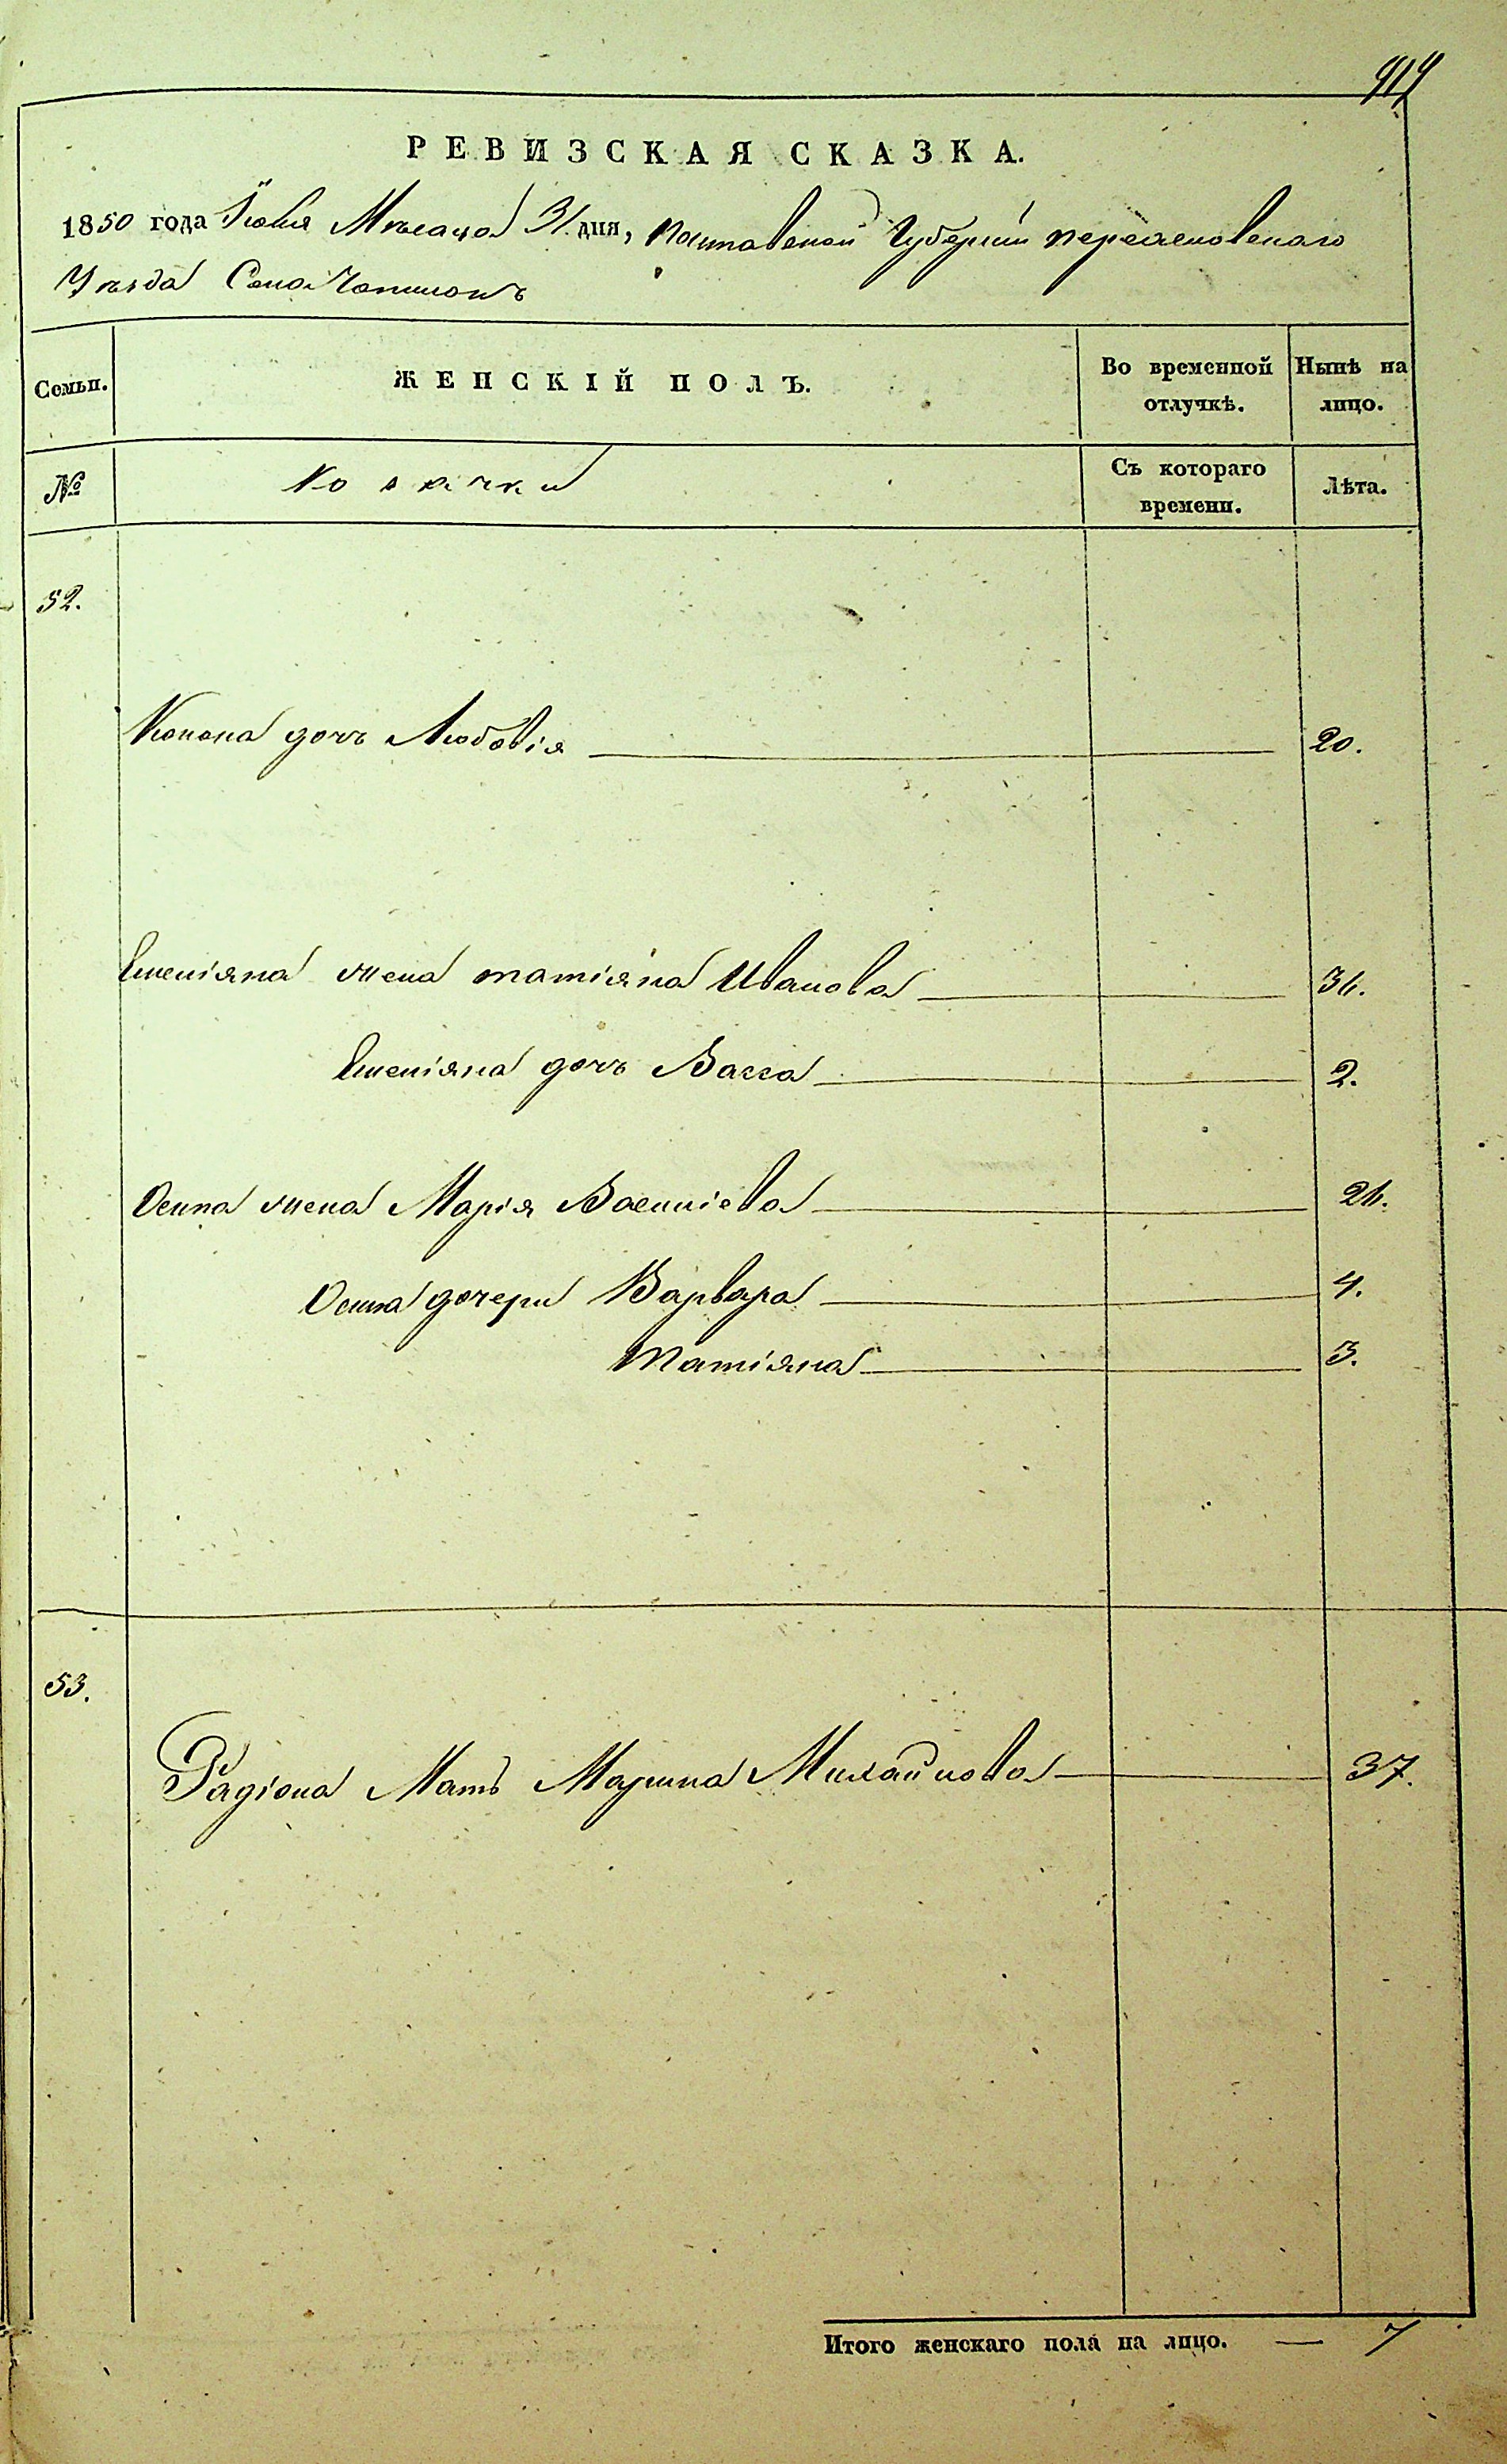 РЕВИЗСКАЯ СКАЗКА.
1850 года Іюля Мѣсяца 31 дня, Полтавской Губерніи Переясловскаго
Уѣзда Села
Семьи. ЖЕНСКІЙ ПОЛЪ. Во временной отлучкѣ. Нынѣ на лицо.
№ Козачки Съ котораго времени. Лѣта.
52.
Конона дочь Любовія 20.
Емеліяна жена Татіяна Иванова 36.
Емеліяна дочь Васса 2.
Осипа жена Марія Василіева 26.
Осипа дочери Варвара 4.
Татіяна 3.
53.
Радіона Мать Марина Михайлова 37.
Итого женскаго пола на лицо. — 7